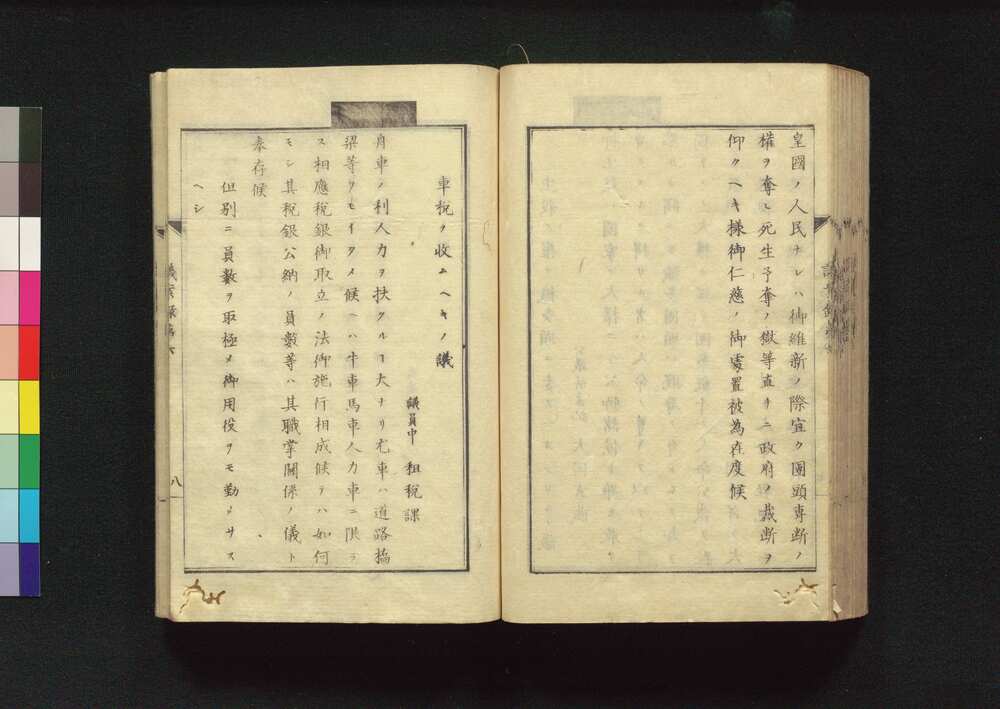 皇國ノ人民ナレハ御維新ノ際宜ク團頭專斷ノ
權ヲ奪ヒ死生予奪ノ獄等直チニ政府ノ裁斷ヲ
仰クヘキ樣御仁慈ノ御處置被為在度候
車税ヲ收ムヘキノ議
議員中 租税課
舟車ノ利人力ヲ扶クルヿ大ナリ尤車ハ道路橋
梁等ヲモイタメ候ヘハ牛車馬車人力車ニ限ラ
ス相應税銀御取立ノ法御施行相成候テハ如何
モシ其税銀公納ノ員數等ハ其職掌關係ノ儀ト
奉存候
但別ニ員數ヲ取極メ御用役ヲモ勤メサス
ヘシ
八